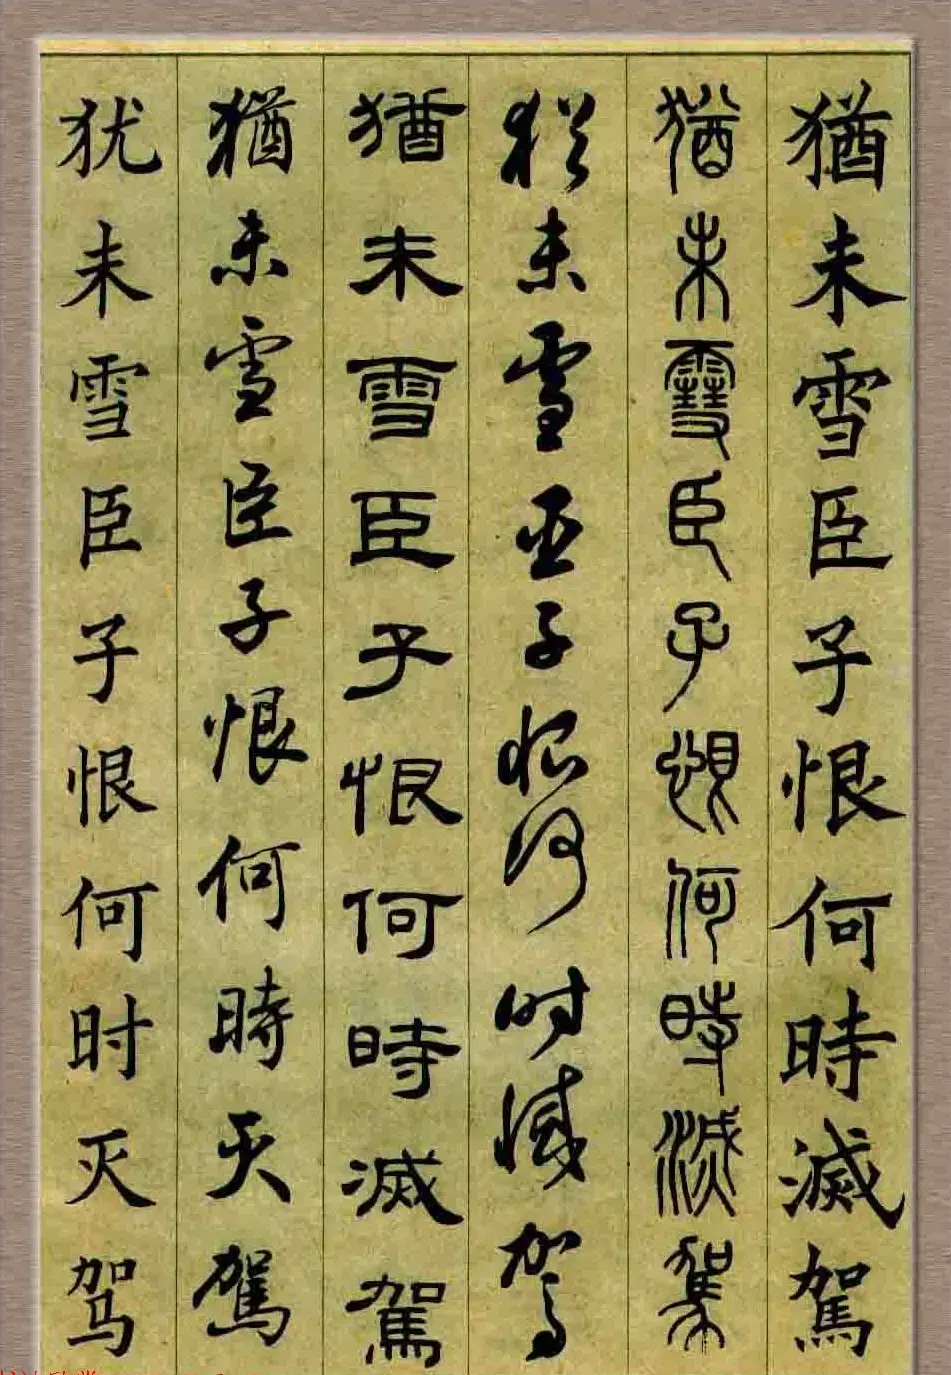 猶未雪臣子恨何時滅駕
猶未雪臣子恨何時滅駕
猶未雪臣子恨何時滅駕
猶未雪臣子恨何時滅駕
猶未雪臣子恨何時灭駕
犹未雪臣子恨何时灭驾